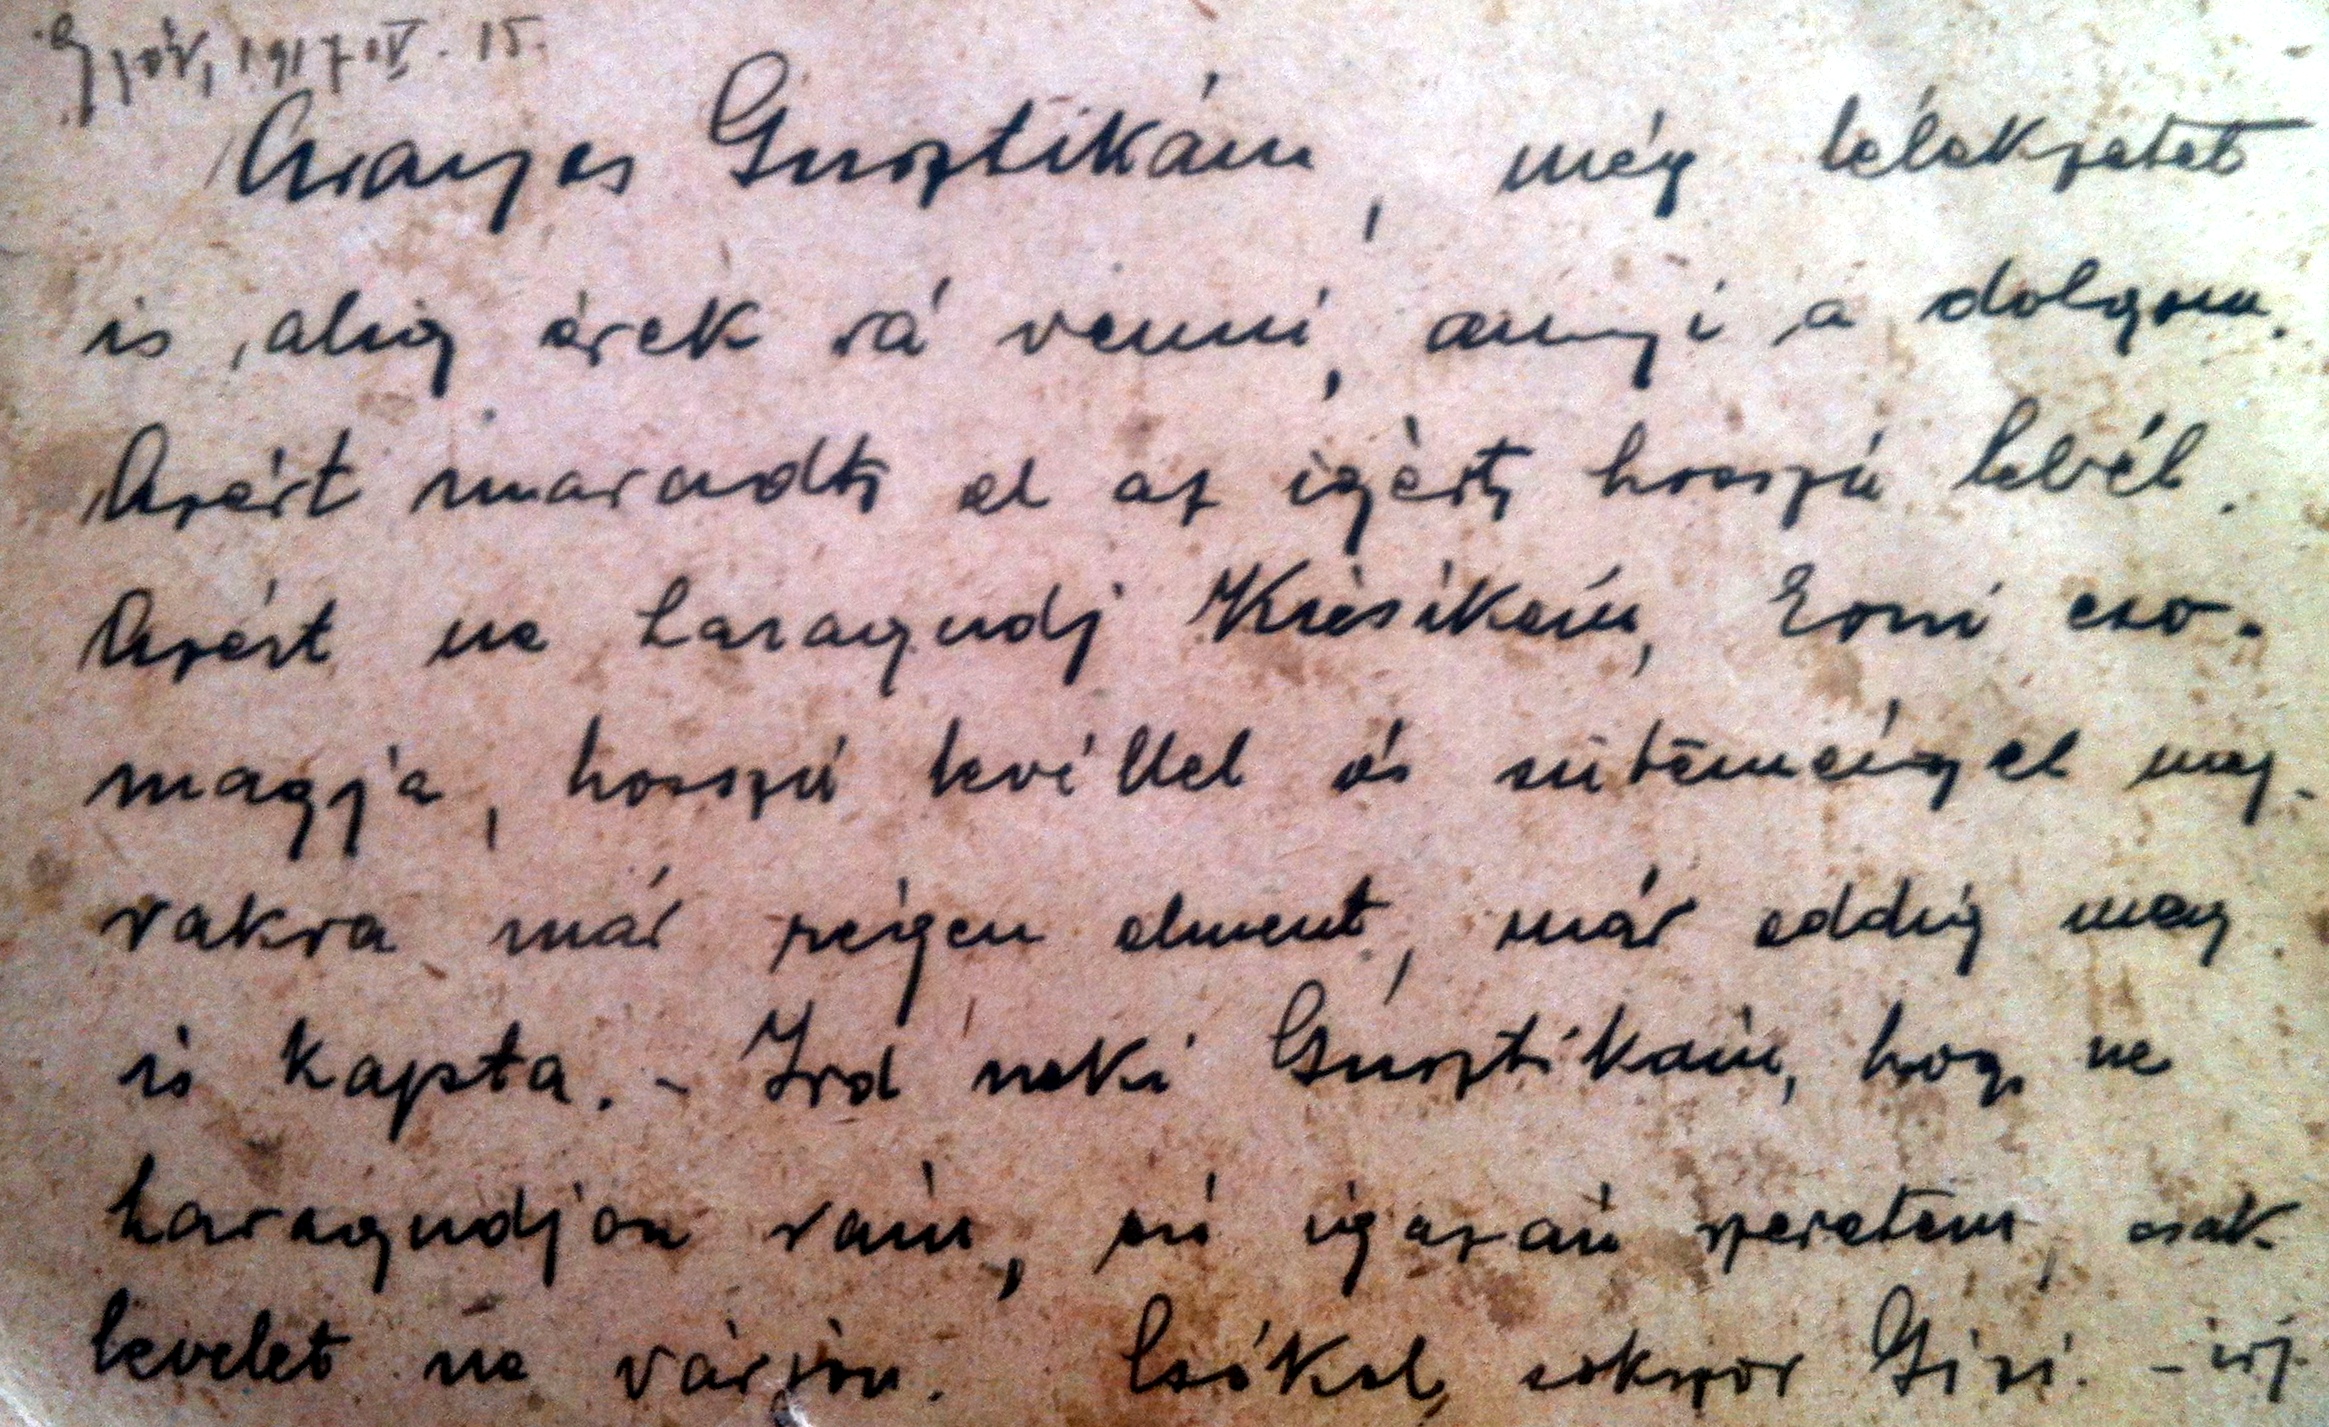 Győr, 1917 IV. 15.
Aranyos Gusztikám, még lélekzetet
is alig érek rá venni, annyi a dolgom.
Azért maradt el az igért hosszú levél.
Azért ne haragudj Kicsikém, Erni cso-
magja, hosszú levéllel és süteménynyel nagy-
vakra már régen elment, már eddig meg
is kapta. - Ird neki Gusztikám, hogy ne
haragudjon rám, én igazán szeretem, csak
levelet ne várjon. Csókol sokszor Gizi. - irj